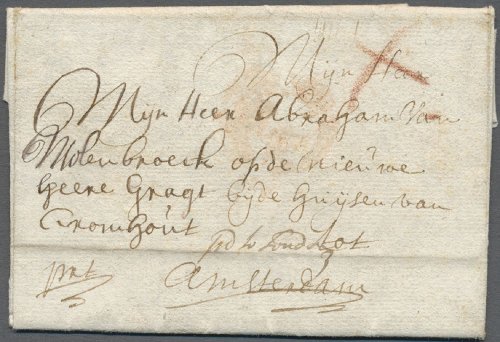 Mijn Heer
Mijn Heer Abraham van
Molenbroeck op de nieuwe
heere Gragt bij de huijsen van
Cromhout
tot
Amsterdam